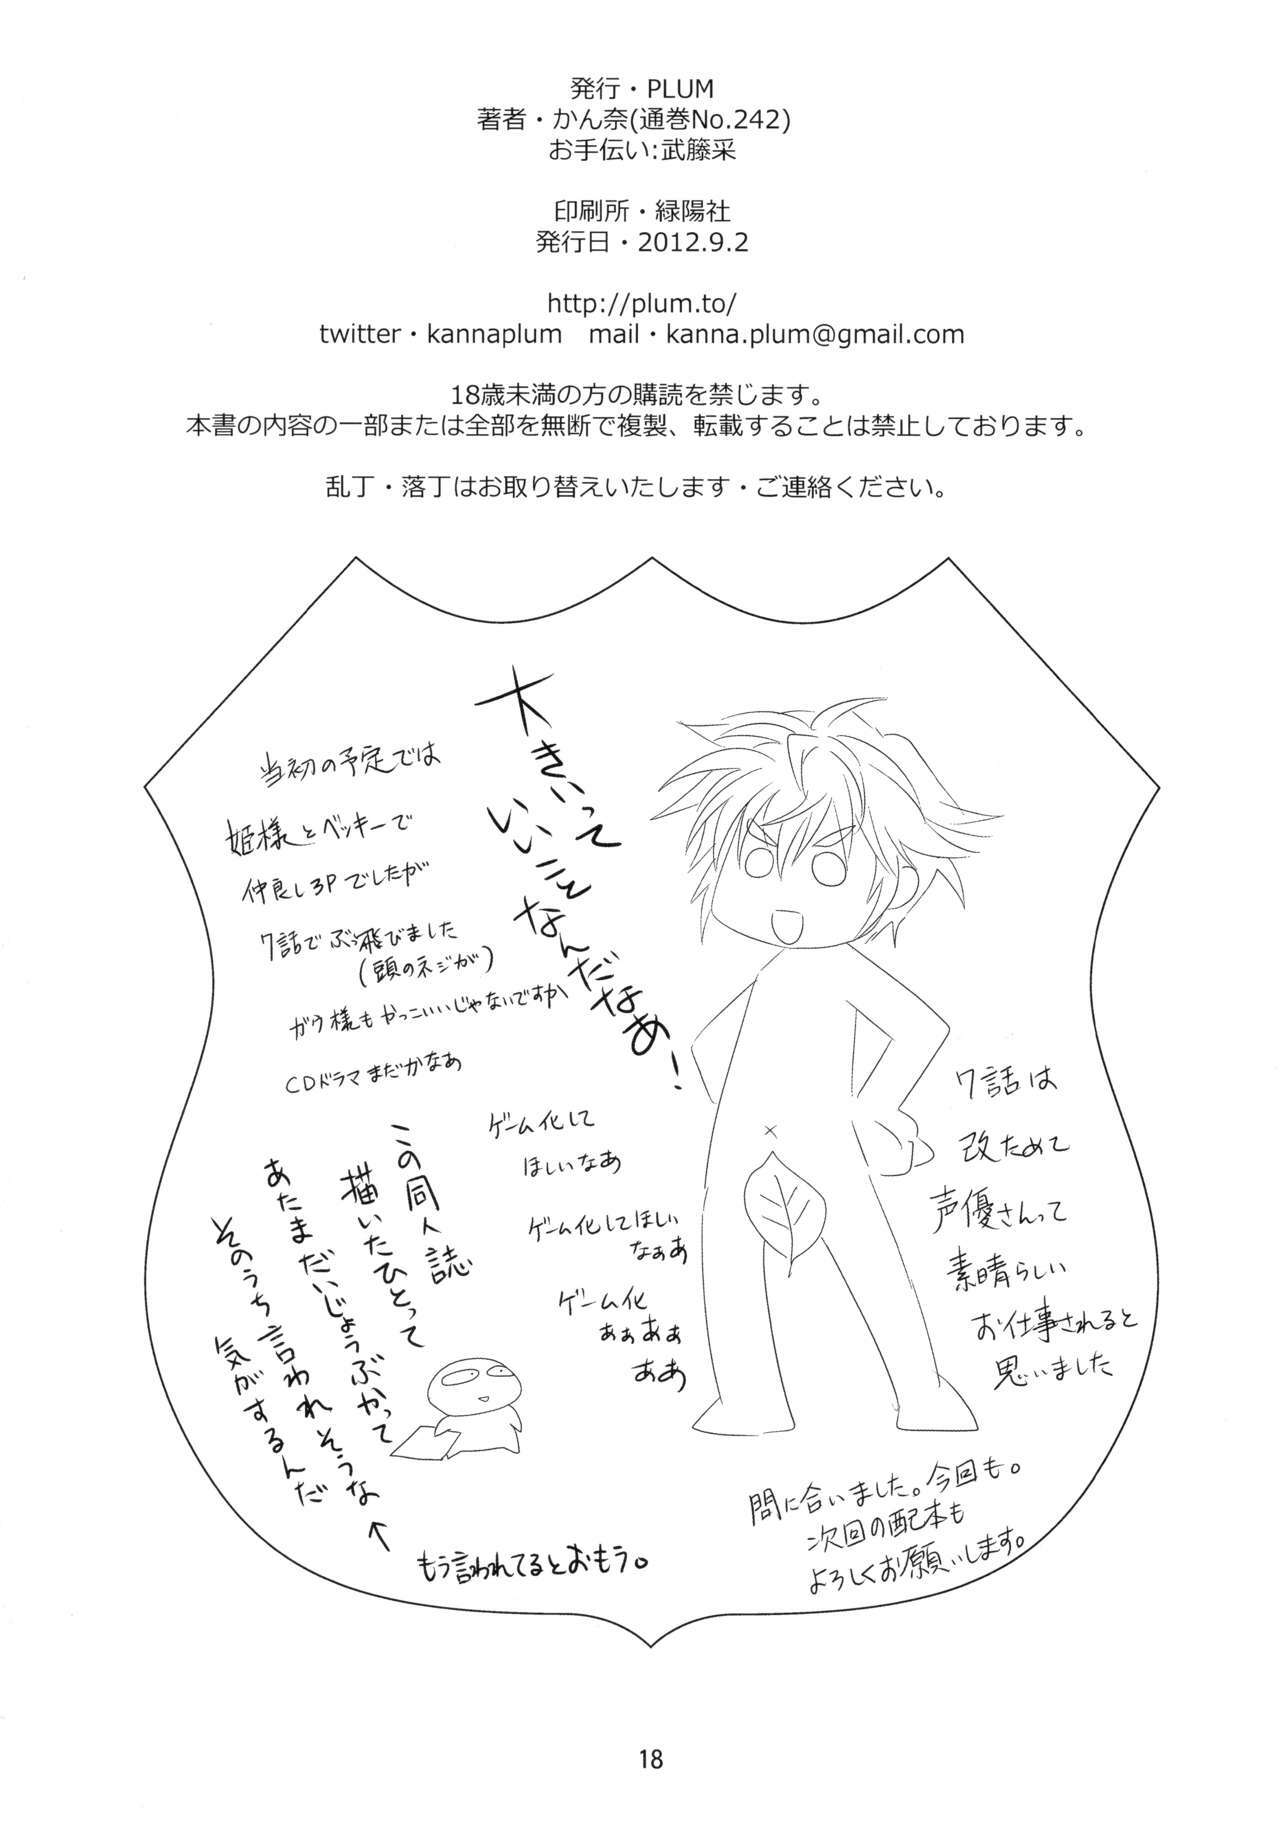 発行・PLUM
著者・かん奈(通巻No.242)
お手伝い:武藤采
印刷所・緑陽社
発行日・2012.9.2
http://plum.to/
twitter・kannaplum　mail・kanna.plum@gmail.com
18歳未満の方の購読を禁じます。
本書の内容の一部または全部を無断で複製、転載することは禁止しております。
乱丁・落丁はお取り替えいたします・ご連絡ください。
大きいって
いいことなんだなあ!
当初の予定では
姫様とベッキーで
仲良し3Pでしたが
7話でぶっ飛びました
(頭のネジが)
ガウ様もかっこいいじゃないですか
CDドラマまだかなあ
ゲーム化して
ほしいなあ
ゲーム化してほしい
なぁあ
ゲーム化
ぁぁぁぁ
ああ
7話は
改ためて
声優さんって
素晴らしい
お仕事されると
思いました
この同人誌
描いたひとって
あたまだいじょうぶかって
そのうち言われそうな
気がするんだ
←もう言われてるとおもう。
間に合いました。今回も。
次回の配本も
よろしくお願いします。
18